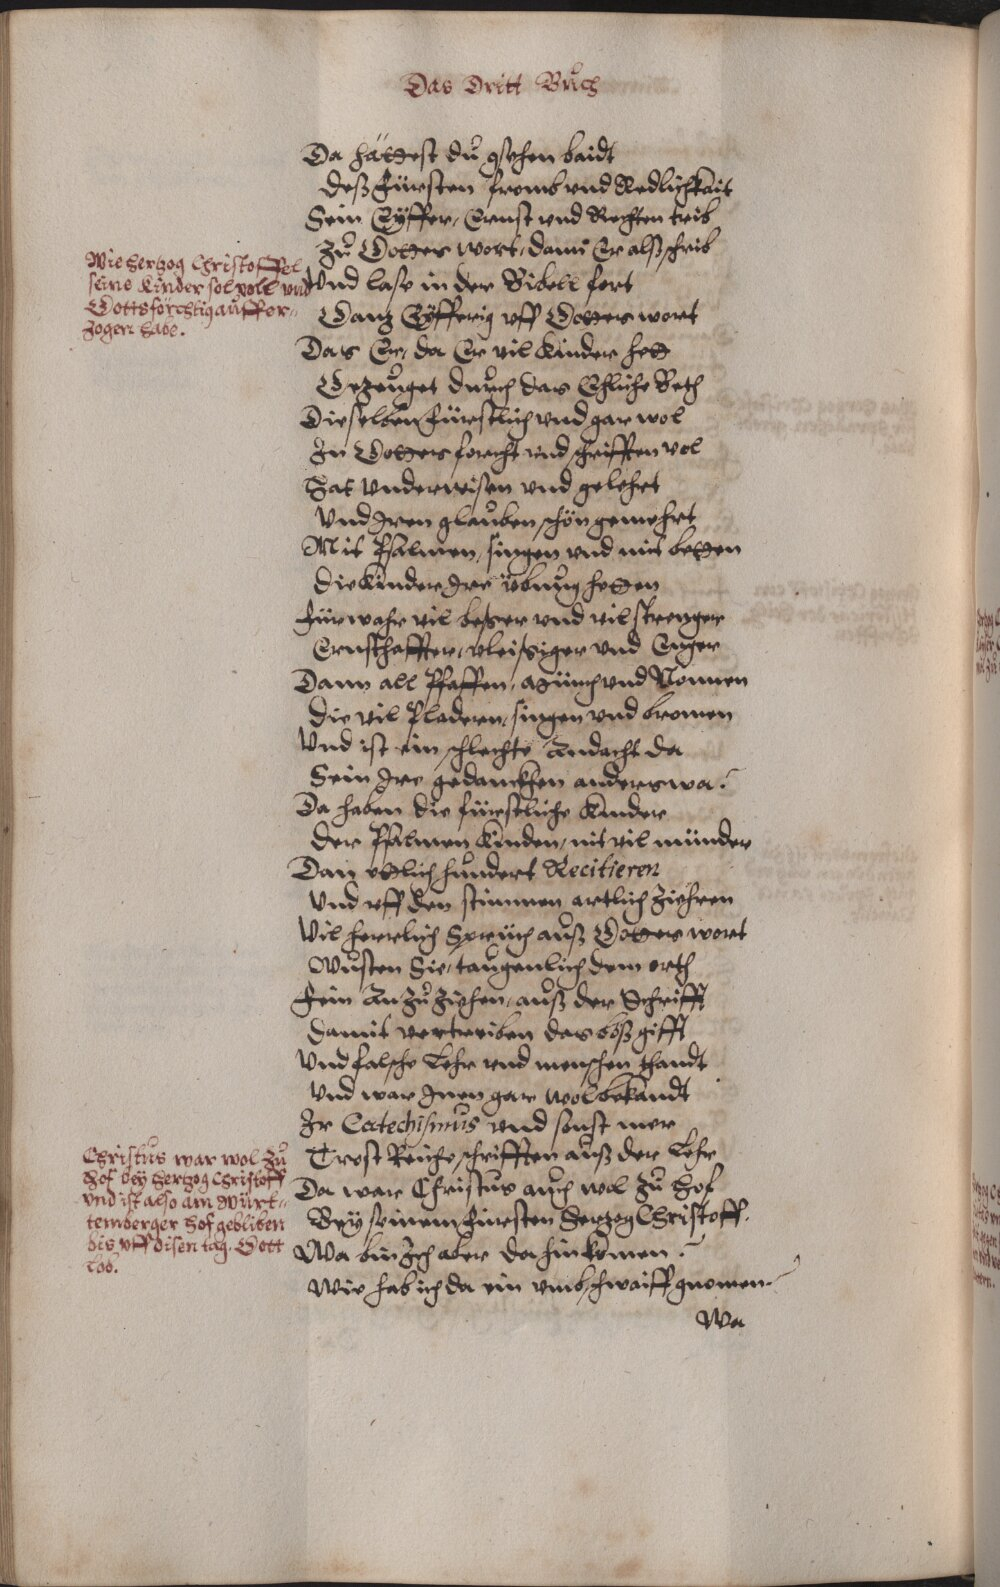 Das Dritt Buch
Da hättest du gsehen baidt
Deß Fürsten fromb und Redlichkait
Sein Eyffer, Ernst und Rechten trib
Zu Gottes wort, dann Er alß schrib
Wie hertzog Christoffel
seine kinder sol woll und
Gottsförchtig auffer-
zogen habe.
Und lase in der Bibell fort
Ganz Eyfferig uff Gottes wort
Das Er, da Er vil Kinder hett
Gezeuget durch das Ehliche Beth
Dieselben Fürstlich und gar wol
In Gottes forcht und schrifften vol
Hat underweisen und gelehrt
Und Iren glauben schön gemehrt
Mit Psalmen, singen und mit betten
Die Kinder Ire übung hetten
Fürwahr vil beßer und vil strenger
Ernsthaffter, vleissiger und Enger
Dann all Pfaffen, Münch und Nonnen
Die vil Pladeren, singen und bromen
Und ist ein schlechte Andacht da
Sein Ire gedanckhen anderswa.
Da haben die fürstliche Kinder
Der Psalmen künden, nit vil münder
Dan etlich hundert Recitieren
Und uff den stimmen artlich ziehren
Vil herrlich Sprüch auß Gottes wort
Wusten Sie, taugenlich dem orth
Fein An zu ziehen, auß der Schrifft
Damit vertreiben das böß gifft
Und falsche Lehr und menschen thandt
Und war Inen gar wol bekandt
Ir Catechismus und sonst mer
Trost Reiche schrifften auß der Lehr
Christus war wol zu
Hof bey hertzog Christoff
und ist also am Würt-
temberger Hof gebliben
bis uff disen tag. Gott
Lob.
Da war Christus auch wol zu Hof
Bey seinem Fürsten Hertzog Christoff.
Wa bin Ich aber da hin komen.
Wie hab ich da ein umbschwaiff gnomen.
Wa